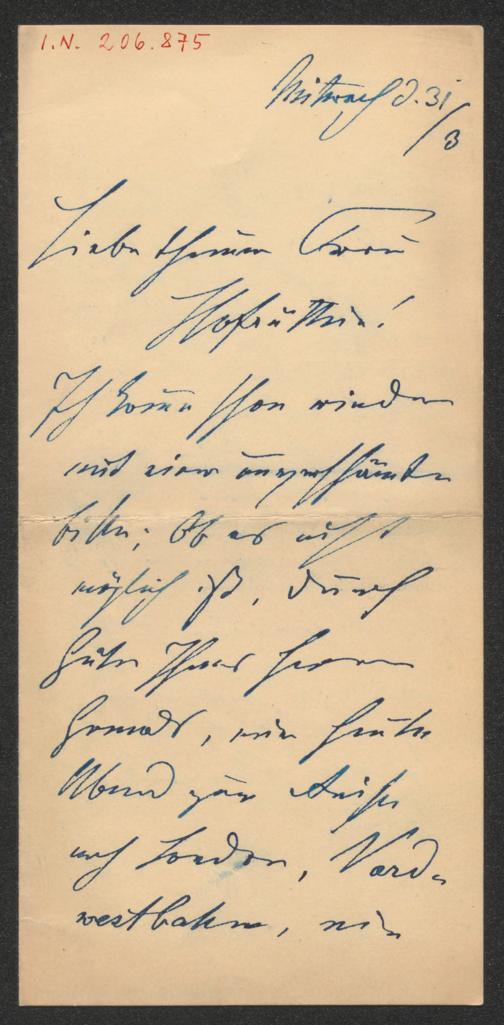 I.N. 206.875
Mittwoch d. 31/3
Liebe theure Frau
Hofräthin!
Ich komme schon wieder
mit einer unverschämten
Bitte; Ob es nicht
möglich ist, durch
Güte Ihres Herrn
Gemals, mir heute
Abend zur Reise
nach London, Nord-
westbahn, ein